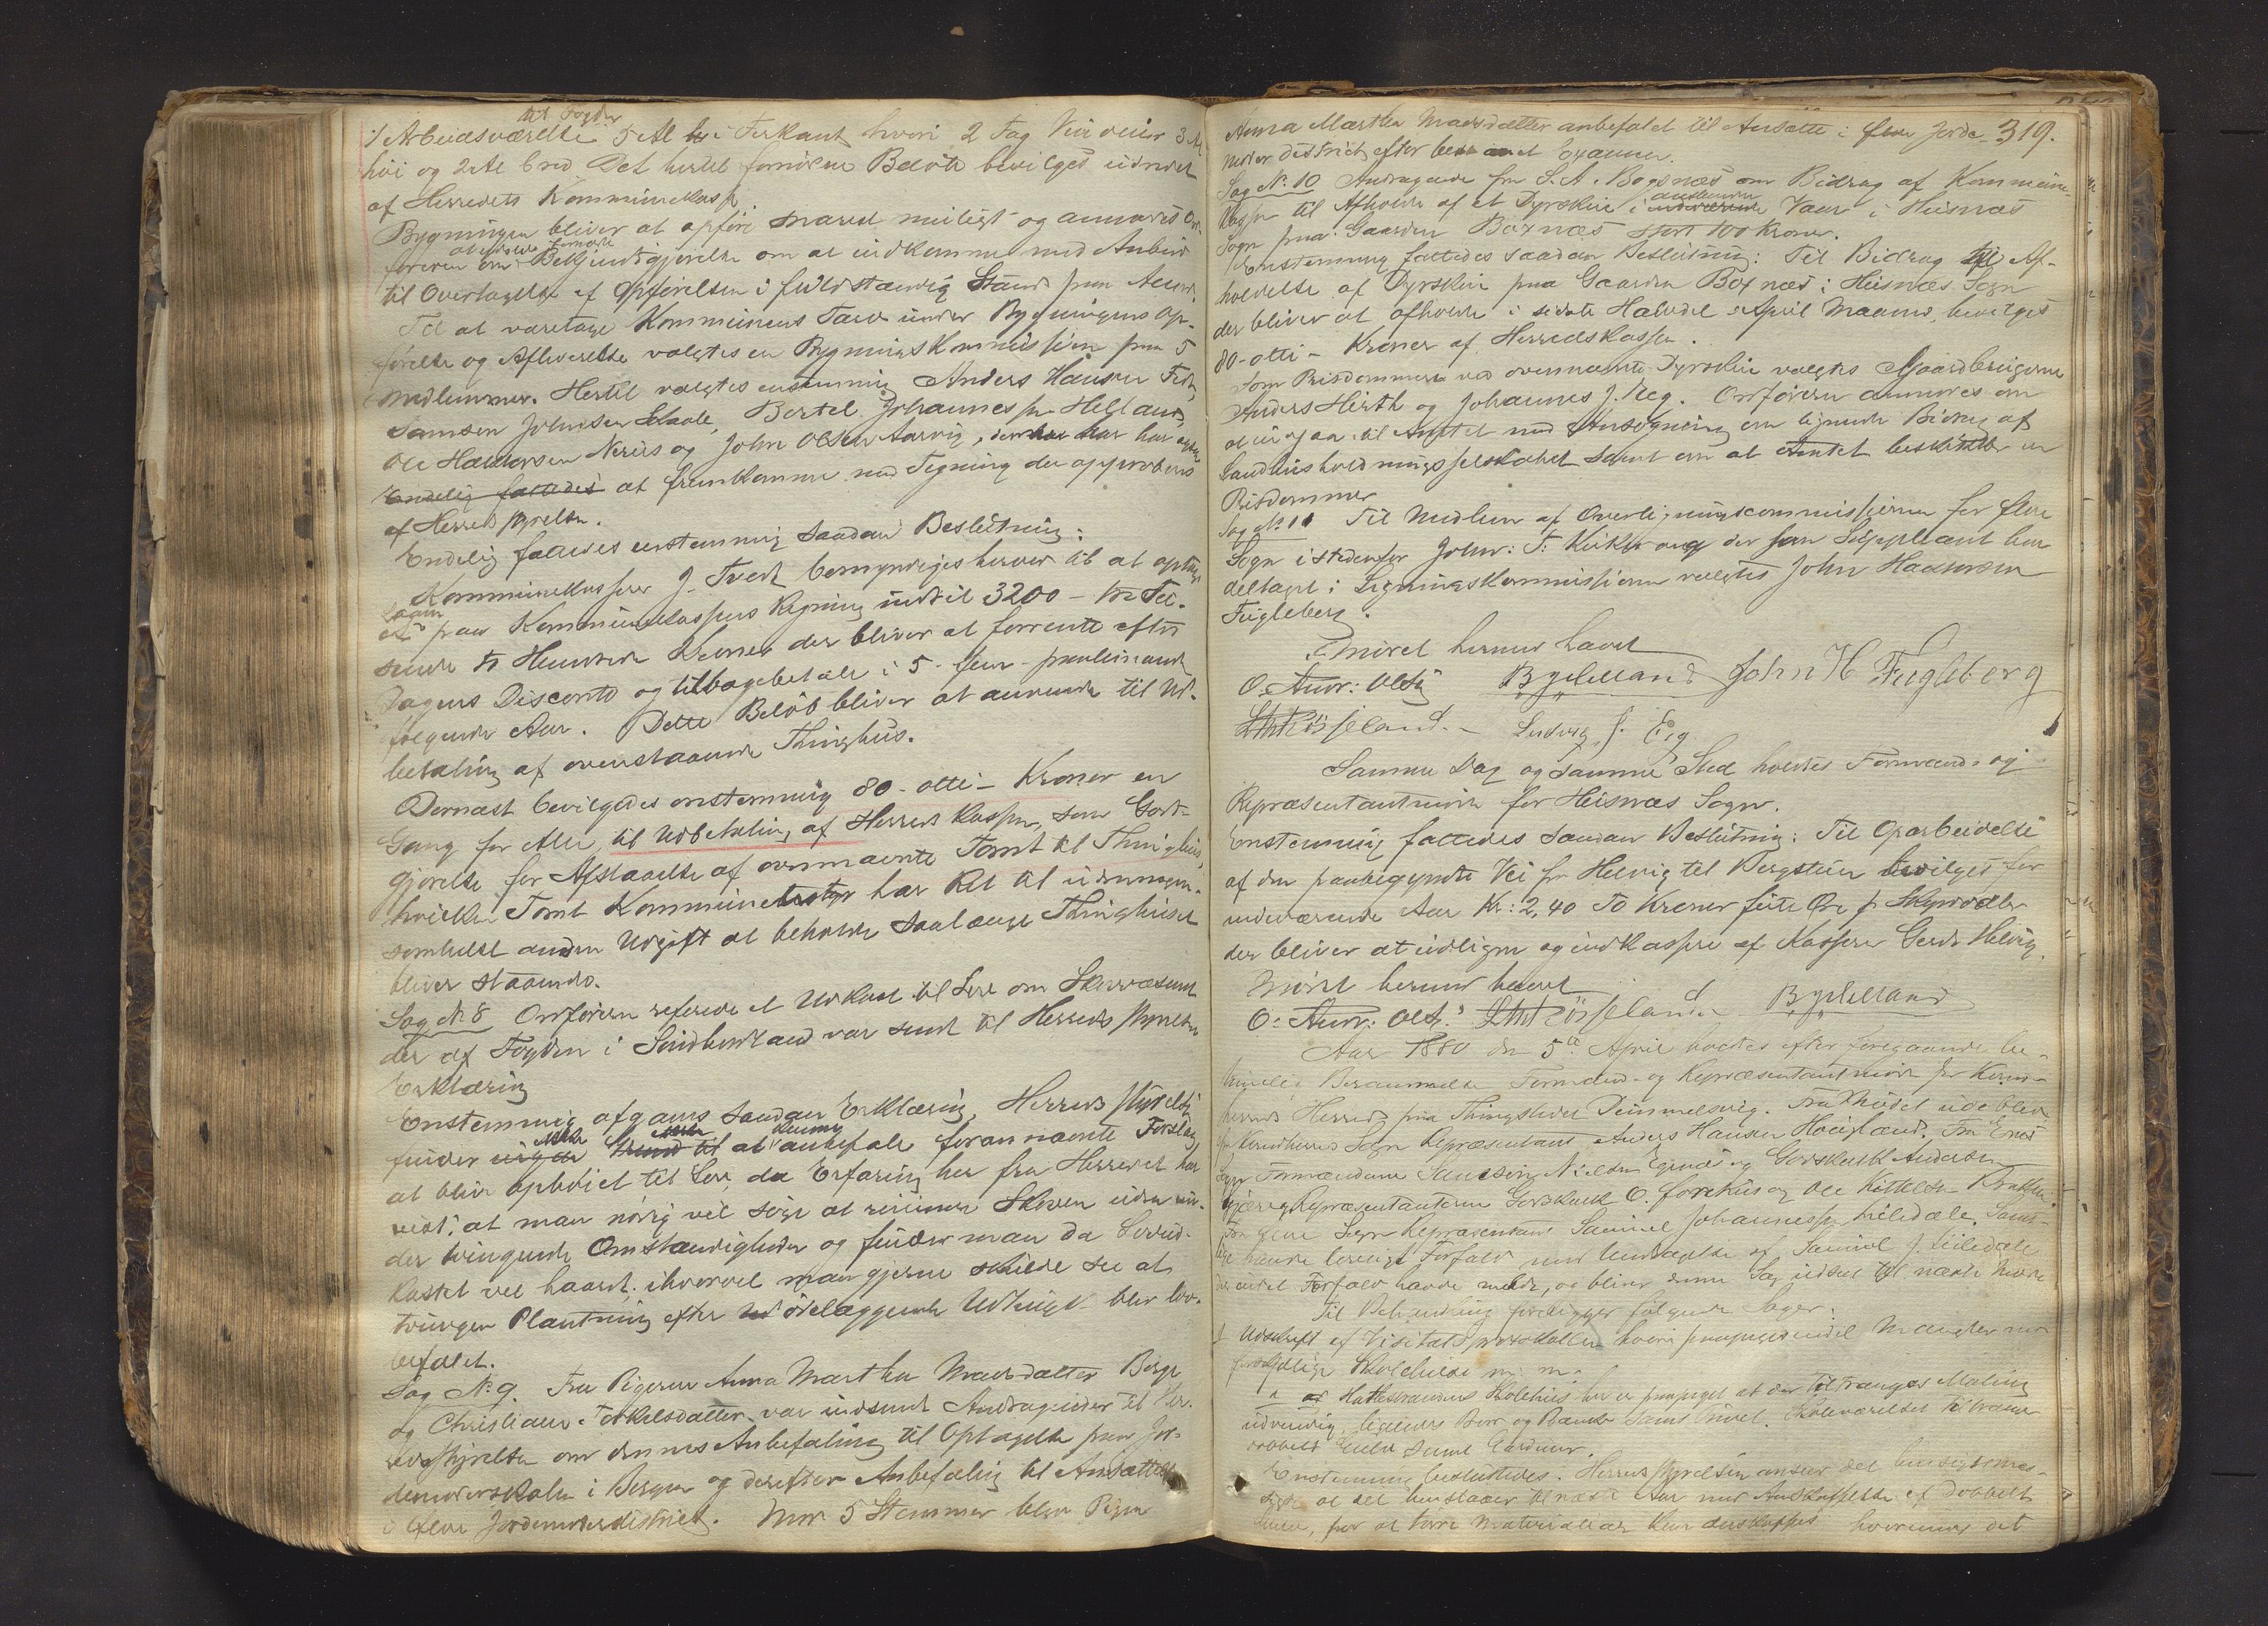 til Fogden
1 Arbeidsværelse 5 Al i Firkant hvori 2 Fag Vinduer 3 Al
høi og 2 Al bred. Det hertil fornødne Beløb bevilges udredet
af Herredets Kommunekasse.
Bygningen bliver at opføre snarest muligt og anmodes Ord-
føreren om Bekjendtgjørelse om at indkomme med Anbud
til Overtagelse af Opførelsen i fuldstændig Stand paa
Til at varetage Kommunens Tarv under Bygningens Op-
førelse og Afleverelse valgtes en Bygningskommission paa 5
Medlemmer. Hertil valgtes enstemmig Anders Hansen
Samson Johnsen Bertel Johannessen Helland,
Ole Haldorsen Nerhus og John Olsen Aarvig, der har
Endelig fattedes at fremkomme med Tegning der approberes
af Herredsstyrelsen.
Endelig fattedes enstemmig saadan Beslutning:
Kommunekasserer J. Tvedt bemyndiges herved til at optage
Laan paa Kommunekassens Regning indtil 3200 - tre Tu-
sende to Hundrede Kroner der bliver at forrente efter
Dagens Disconto og tilbagebetale i 5 - fem - paahinanden
følgende Aar. Dette Beløb bliver at anvende til Ud-
betaling af ovenstaaende Thinghus.
Dernæst bevilgedes enstemmig 80 - otti - Kroner en
Gang for Alle, til Udbetaling af Herredskassen, som Godt-
gjørelse for Afstaaelse af ovennævnte Tomt til Thinghus,
hvilken Tomt Kommunebestyr har Ret til uden nogen-
somhelst anden Udgift at beholde saalænge Thinghuset
bliver staaende.
Sag No 8 Ordføreren refererede et Udkast til Lov om Skovvæsenet
der af Fogden i Søndhordland var sendt til Herredsstyrelsens
Erklæring
Enstemmig afgaves saadan Erklæring, Herredsstyrelsen
finder ikke at kunne anbefale forannævnte Forslag
at blive ophøiet til Lov, da Erfaring her fra Herredet har
vist, at man nødig vil søge at ruinere Skoven uden un-
der tvingende Omstændigheder og finder man da Lovud-
kastet vel haardt, ihvorvel man gjerne skulde se at
tvungen Plantning efter ødelæggende Udhugst blev lov-
befalet.
Sag No 9. Fra Pigerne Anna Martha Madsdatter Berge
og Christiane Torkelsdatter var indsendt Andragender til Her-
redsstyrelsen om dennes Anbefaling til Optagelse paa Jor-
demoderskolen i Bergen og derefter Anbefaling til Ansættelse
i Ølve Jordemoderdistrict. Med 5 Stemmer blev Pigen
319.
Anna Martha Madsdatter anbefalet til Ansætte i Ølve Jorde-
moderdistrict efter bestaaet Examen.
Sag No 10 Andragende fra S. A. Bogsnæs om Bidrag af Kommune-
kassen til Afholdelse af et Dyrskue i Vaar i Husnæs
Sogn paa Gaarden Bogsnæs stort 100 Kroner.
Enstemmig fattedes saadan Beslutning: Til Bidrag til Af-
holdelse af Dyrskue paa Gaarden Bogsnæs i Husnæs Sogn
der bliver at afholde i sidste Halvdel April Maaned, bevilges
80 - otti - Kroner af Herredskassen.
Som Prisdommere ved ovennævnte Dyrskue valgtes Gaardbrugerne
Anders Hirth og Johannes J. Øeg. Ordføreren anmodes om
at indgaa til Amtet med Ansøgning om lignende Bidrag af
Landhusholdningsselskabet samt om at Amtet beskikker en
Prisdommer
Sag No 11 Til Medlem af Overligningscommissionen for Ølve
Sogn istedenfor John: T: der som Suppleant har
deltaget i Ligningskommissionen valgtes John Haavorsen
Fugleberg.
Mødet hermed hævet
O. Andr: Olsen Bychelland John H Fugleberg
Røsseland. - Ludvig J. Eig
Samme Dag og samme Sted holdtes Formands- og
Repræsentantmøde for Husnæs Sogn.
Enstemmig fattedes saadan Beslutning: Til Oparbeidelse
af den paabegyndte Vei fra Helvig til Bergstuen bevilges for
indeværende Aar Kr: 2,40 To Kroner førti Øre pr Skyloddaler
der bliver at udligne og indkassere af Kasserer Gerdt Helvig.
Mødet hermed hævet
O. Andr: Ols: Røsseland Bychelland
Aar 1880 den 5te April holdtes efter foregaaende be-
timelig Berammelse Formands- og Repræsentantmøde for Kvind-
herreds Herred paa Thingstedet Dimmelsvig. Fra Mødet udeblev
fra Kvindherreds Sogn Repræsentant Anders Hansen Haugland. Fra Enæs
Sogn Formændene og Godskalk Andersen
og Repræsentanterne Godskalk O. og Ole Kittelsen
Fra Ølve Sogn Repræsentant Samuel Johannessen Lilledale. Samt-
lige havde lovligt Forfald med Undtagelse af Samuel J. Lilledale
der intet Forfald havde meldt, og bliver denne Sag udsat til næste Møde
Til Behandling foreligger følgende Sager:
1 Udskrift af Visitatsprotokollen hvori paapeges endel Mangler ved
forskjellige Skolehuse m. m.
a Hatlestrandens Skolehus her er paapeget at der tiltrænges Maling
udvendig, ligeledes Bord og Bænke samt Tavel. Skoleværelset tiltrænger
dobbelt Gulv samt Gardiner.
Enstemmig besluttedes. Herredsstyrelsen anser det hensigtsmæs-
sigt at det henstaaer til næste Aar med Anskaffelse af dobbelt
Gulv, for at tørre Materialier kan anskaffes hvorimod det